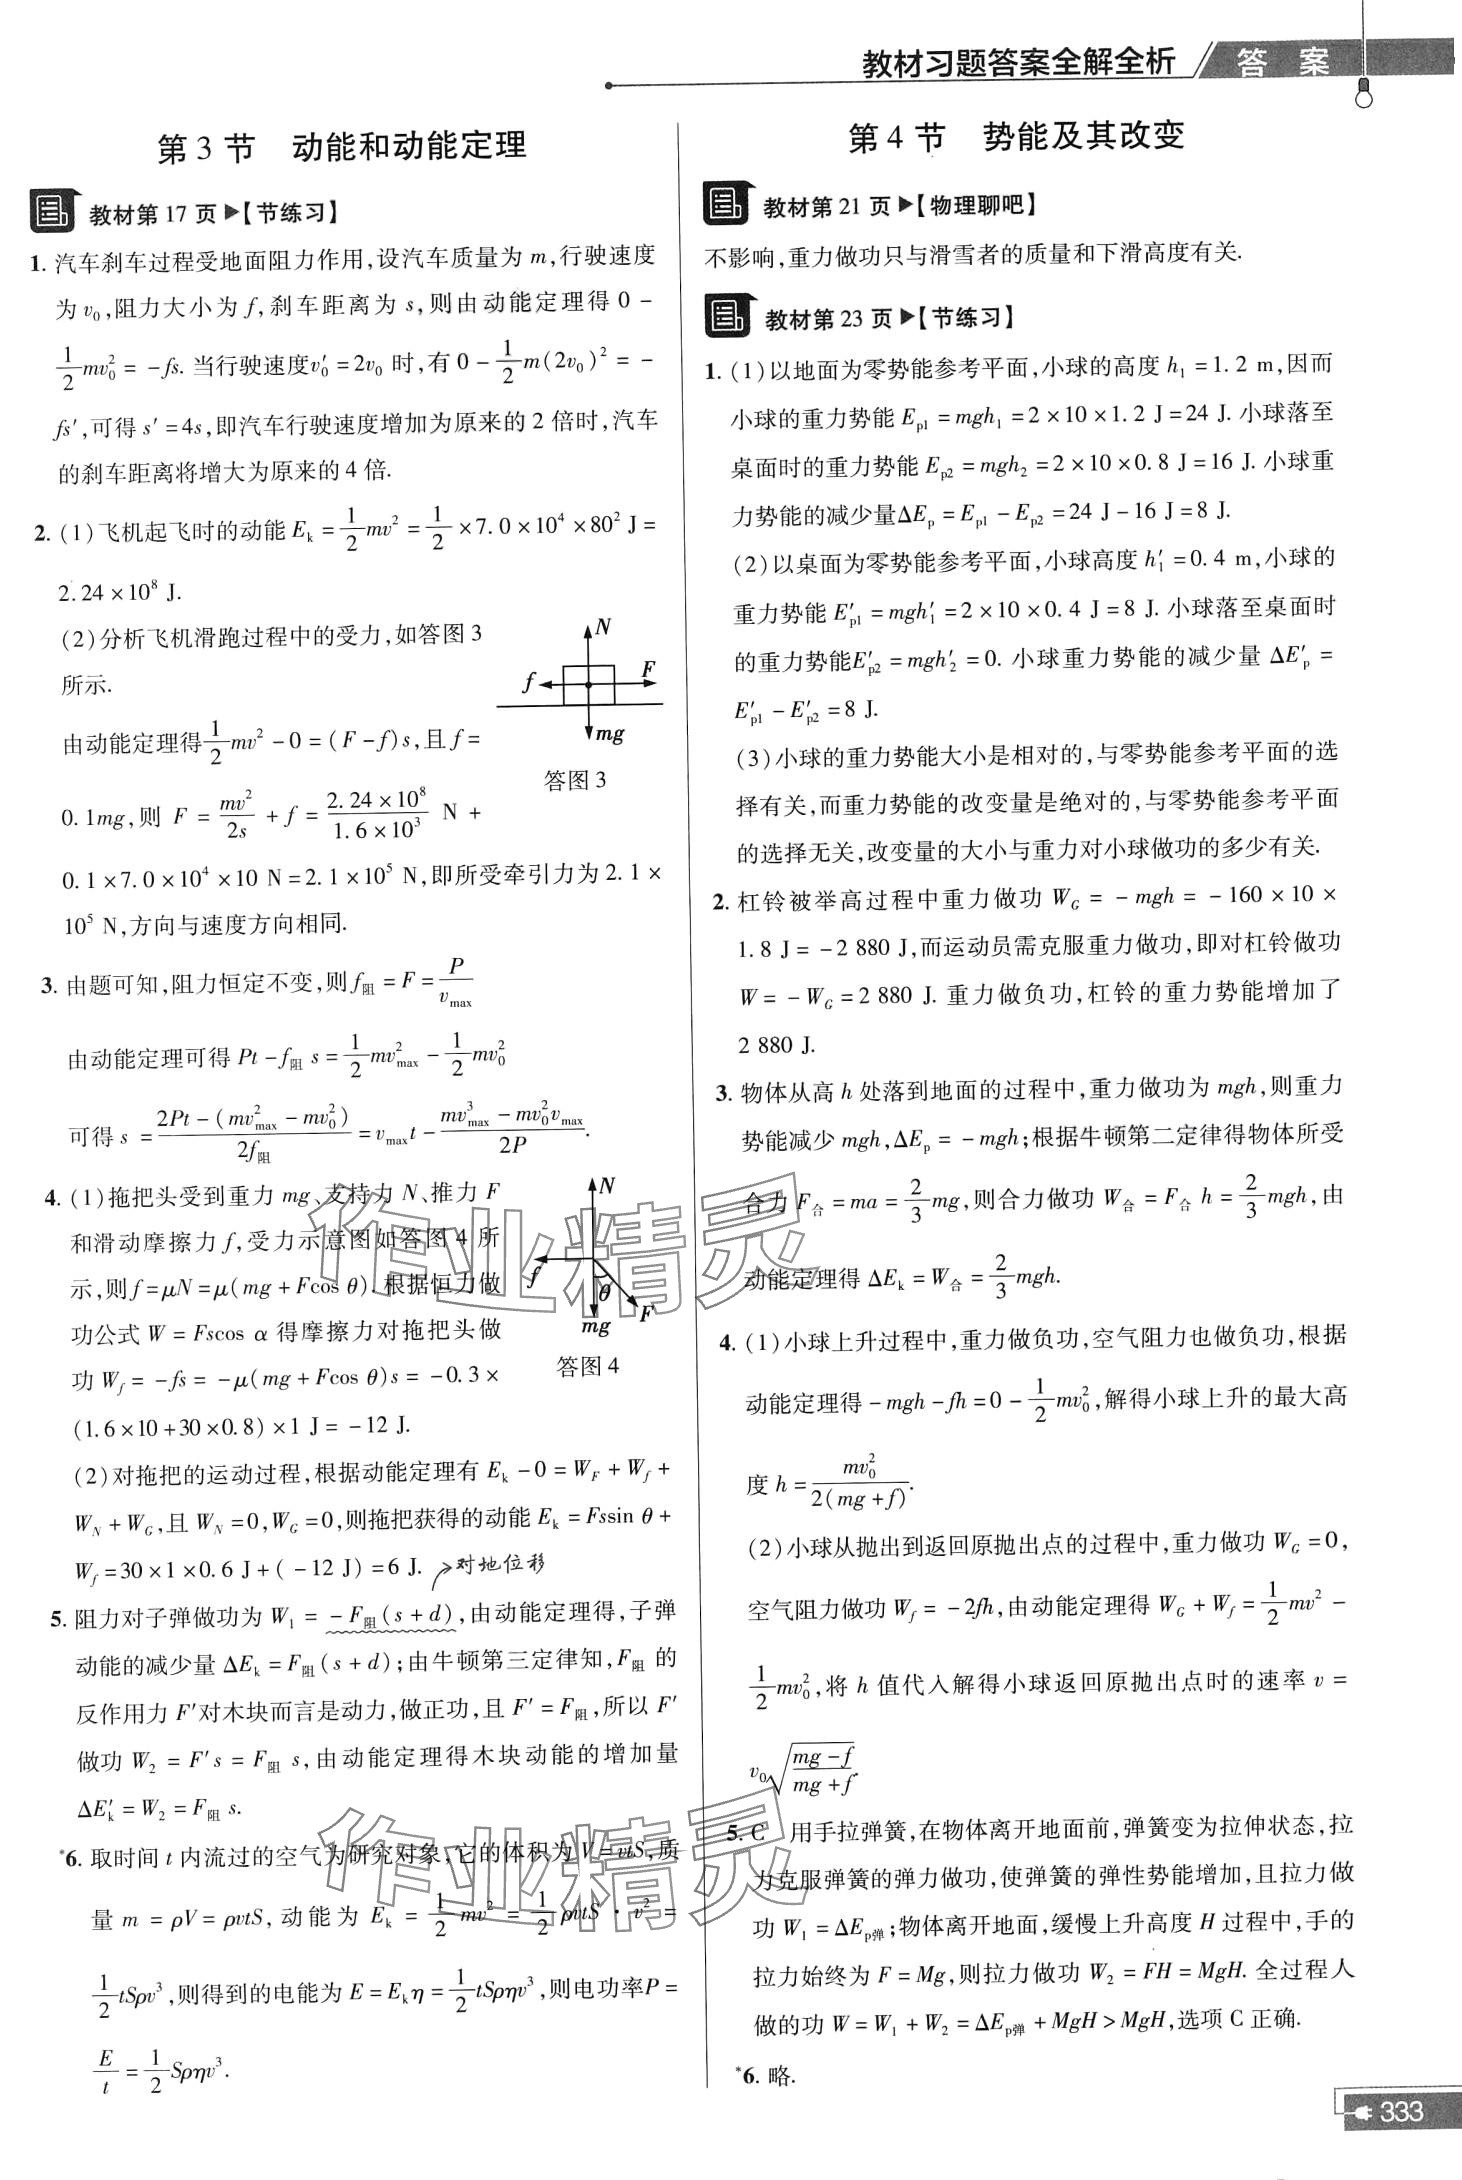 教材习题答案全解全析 答 案
第 3 节 动能和动能定理
教材第 17 页▶【节练习】
1. 汽车刹车过程受地面阻力作用,设汽车质量为 m,行驶速度
为 v₀,阻力大小为 f,刹车距离为 s,则由动能定理得 0 -
1/2 mv₀² = -fs. 当行驶速度v₀′ = 2v₀ 时,有 0 - 1/2 m(2v₀)² = -
fs′,可得 s′ = 4s,即汽车行驶速度增加为原来的 2 倍时,汽车
的刹车距离将增大为原来的 4 倍.
2. (1)飞机起飞时的动能 Eₖ = 1/2 mv² = 1/2 × 7. 0 × 10⁴ × 80² J =
2. 24 × 10⁸ J.
(2)分析飞机滑跑过程中的受力,如答图 3
所示.
N
f F
mg
答图 3
由动能定理得 1/2 mv² - 0 = (F - f)s,且 f =
0. 1mg,则 F = mv²/2s + f = (2. 24 × 10⁸)/(1. 6 × 10³) N +
0. 1 × 7. 0 × 10⁴ × 10 N = 2. 1 × 10⁵ N,即所受牵引力为 2. 1 ×
10⁵ N,方向与速度方向相同.
3. 由题可知,阻力恒定不变,则 f阻 = F = P/vmax
由动能定理可得 Pt - f阻 s = 1/2 mv²max - 1/2 mv₀²
可得 s = [2Pt - (mv²max - mv₀²)]/2f阻 = vmax t - (mv³max - mv₀²vmax)/2P.
4. (1)拖把头受到重力 mg、支持力 N、推力 F
和滑动摩擦力 f,受力示意图如答图 4 所
示,则 f = μN = μ(mg + Fcos θ). 根据恒力做
功公式 W = Fscos α 得摩擦力对拖把头做
功 W_f = -fs = -μ(mg + Fcos θ)s = -0. 3 ×
(1. 6 × 10 + 30 × 0. 8) × 1 J = -12 J.
N
f θ
mg F
答图 4
(2)对拖把的运动过程,根据动能定理有 Eₖ - 0 = W_F + W_f +
W_N + W_G,且 W_N = 0,W_G = 0,则拖把获得的动能 Eₖ = Fssin θ +
W_f = 30 × 1 × 0. 6 J + ( -12 J) = 6 J. 对地位移
5. 阻力对子弹做功为 W₁ = -F阻(s + d),由动能定理得,子弹
动能的减少量 ΔEₖ = F阻(s + d);由牛顿第三定律知,F阻 的
反作用力 F′对木块而言是动力,做正功,且 F′ = F阻,所以 F′
做功 W₂ = F′s = F阻 s,由动能定理得木块动能的增加量
ΔEₖ′ = W₂ = F阻 s.
*6. 取时间 t 内流过的空气为研究对象,它的体积为 V = vtS,质
量 m = ρV = ρvtS,动能为 Eₖ = 1/2 mv² = 1/2 ρvtS · v² =
1/2 tSρv³,则得到的电能为 E = Eₖη = 1/2 tSρηv³,则电功率P =
E/t = 1/2 Sρηv³.
第 4 节 势能及其改变
教材第 21 页▶【物理聊吧】
不影响,重力做功只与滑雪者的质量和下滑高度有关.
教材第 23 页▶【节练习】
1. (1)以地面为零势能参考平面,小球的高度 h₁ = 1. 2 m,因而
小球的重力势能 Ep1 = mgh₁ = 2 × 10 × 1. 2 J = 24 J. 小球落至
桌面时的重力势能 Ep2 = mgh₂ = 2 × 10 × 0. 8 J = 16 J. 小球重
力势能的减少量ΔEp = Ep1 - Ep2 = 24 J - 16 J = 8 J.
(2)以桌面为零势能参考平面,小球高度 h₁′ = 0. 4 m,小球的
重力势能 E′p1 = mgh₁′ = 2 × 10 × 0. 4 J = 8 J. 小球落至桌面时
的重力势能E′p2 = mgh₂′ = 0. 小球重力势能的减少量 ΔE′p =
E′p1 - E′p2 = 8 J.
(3)小球的重力势能大小是相对的,与零势能参考平面的选
择有关,而重力势能的改变量是绝对的,与零势能参考平面
的选择无关,改变量的大小与重力对小球做功的多少有关.
2. 杠铃被举高过程中重力做功 W_G = -mgh = -160 × 10 ×
1. 8 J = -2 880 J,而运动员需克服重力做功,即对杠铃做功
W = -W_G = 2 880 J. 重力做负功,杠铃的重力势能增加了
2 880 J.
3. 物体从高 h 处落到地面的过程中,重力做功为 mgh,则重力
势能减少 mgh,ΔEp = -mgh;根据牛顿第二定律得物体所受
合力 F合 = ma = 2/3 mg,则合力做功 W合 = F合 h = 2/3 mgh,由
动能定理得 ΔEₖ = W合 = 2/3 mgh.
4. (1)小球上升过程中,重力做负功,空气阻力也做负功,根据
动能定理得 -mgh - fh = 0 - 1/2 mv₀²,解得小球上升的最大高
度 h = mv₀²/2(mg + f).
(2)小球从抛出到返回原抛出点的过程中,重力做功 W_G = 0,
空气阻力做功 W_f = -2fh,由动能定理得 W_G + W_f = 1/2 mv² -
1/2 mv₀²,将 h 值代入解得小球返回原抛出点时的速率 v =
v₀√((mg - f)/(mg + f)).
5. C 用手拉弹簧,在物体离开地面前,弹簧变为拉伸状态,拉
力克服弹簧的弹力做功,使弹簧的弹性势能增加,且拉力做
功 W₁ = ΔEp弹;物体离开地面,缓慢上升高度 H 过程中,手的
拉力始终为 F = Mg,则拉力做功 W₂ = FH = MgH. 全过程人
做的功 W = W₁ + W₂ = ΔEp弹 + MgH > MgH,选项 C 正确.
*6. 略.
333
作业精灵
作业精灵